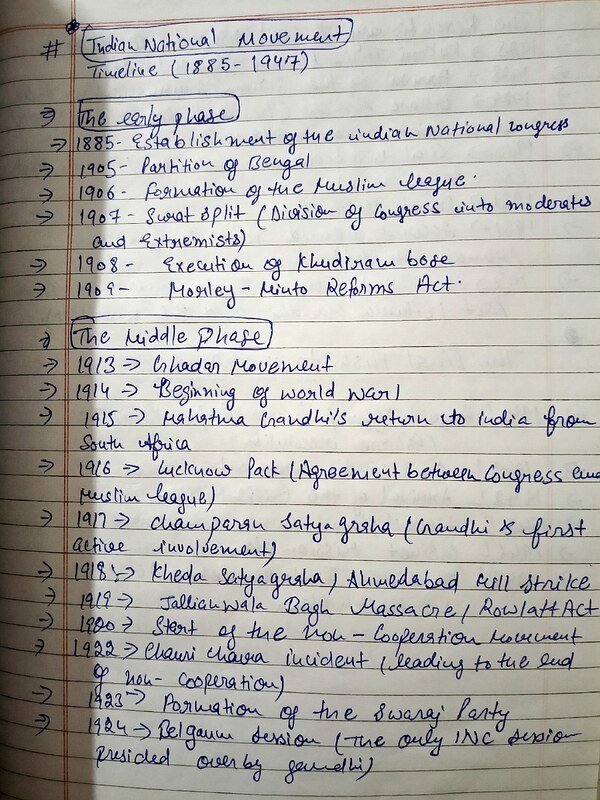 # Indian National Movement
Timeline (1885-1947)
⇒ The early phase
⇒ 1885- Establishment of the indian National congress
⇒ 1905- Partition of Bengal
⇒ 1906- Formation of the Muslim league.
⇒ 1907- Surat split (Division of Congress into moderates
and Extremists)
⇒ 1908- Execution of Khudiram bose
⇒ 1909- Morley-Minto Reforms Act.
⇒ The Middle phase
⇒ 1913 ⇒ Ghadar Movement
⇒ 1914 ⇒ Beginning of world war 1
⇒ 1915 ⇒ Mahatma Gandhi's return to india from
South Africa
⇒ 1916 ⇒ Lucknow Pack (Agreement between Congress and
Muslim league)
⇒ 1917 ⇒ champaran Satyagrsha (Gandhi's first
active involvement)
⇒ 1918 ⇒ Kheda Satyagrsha / Ahmedabad Mill Strike
⇒ 1919 ⇒ Jallianwala Bagh Massacre / Rowlatt Act
⇒ 1920 ⇒ Start of the Non-Cooperation Movement
⇒ 1922 ⇒ Chauri chaura incident (leading to the end
of non-cooperation)
⇒ 1923 ⇒ Formation of the Swaraj Party
⇒ 1924 ⇒ Belgaum Session (The only INC session
presided over by gandhi)